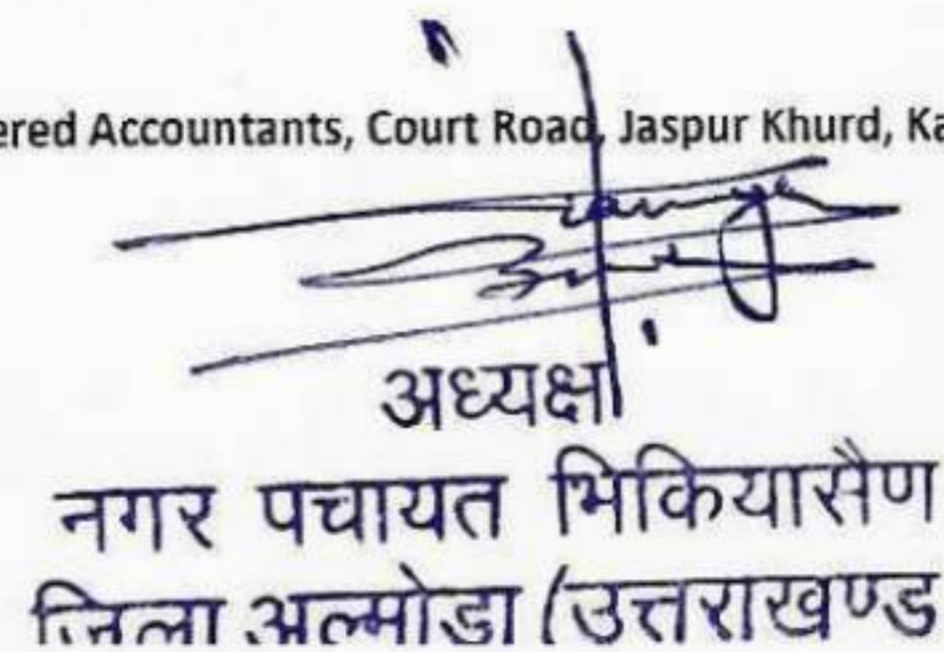 ered Accountants, Court Road, Jaspur Khurd, Ka
अध्यक्ष
नगर पचायत भिकियासैण
जिला अल्मोडा (उत्तराखण्ड